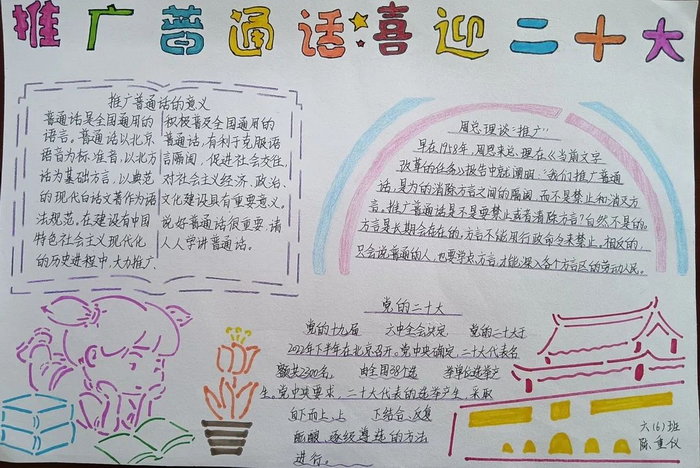 推广普通话喜迎二十大
推广普通话的意义
普通话是全国通用的
语言。普通话以北京
语音为标准音,以北方
话为基础方言,以典范
的现代白话文著作为语
法规范。在建设有中国
特色社会主义现代化
的历史进程中,大力推广、
积极普及全国通用的
普通话,有利于克服语
言隔阂,促进社会交往,
对社会主义经济、政治、
文化建设具有重要意义。
说好普通话很重要,请
人人学讲普通话。
周总理谈“推广”
早在1958年,周恩来总理在《当前文字
改革的任务》报告中就阐明:“我们推广普通
话,是为的消除方言之间的隔阂,而不是禁止和消灭方
言。推广普通话是不是要禁止或者消除方言?自然不是的。
方言是长期会存在的,方言不能用行政命令来禁止。相反的,
只会说普通的人,也要学点方言,才能深入各个方言区的劳动人民。
党的二十大
党的十九届 六中全会决定 党的二十大于
2022年下半年在北京召开,党中央确定,二十大代表名
额共2300名, 由全国38个选 举单位选举产
生。党中央要求,二十大代表的选举产生,采取
自下而上、上 下结合、反复
酝酿、逐级遴选的方法
进行。
六(6)班
陈重仪